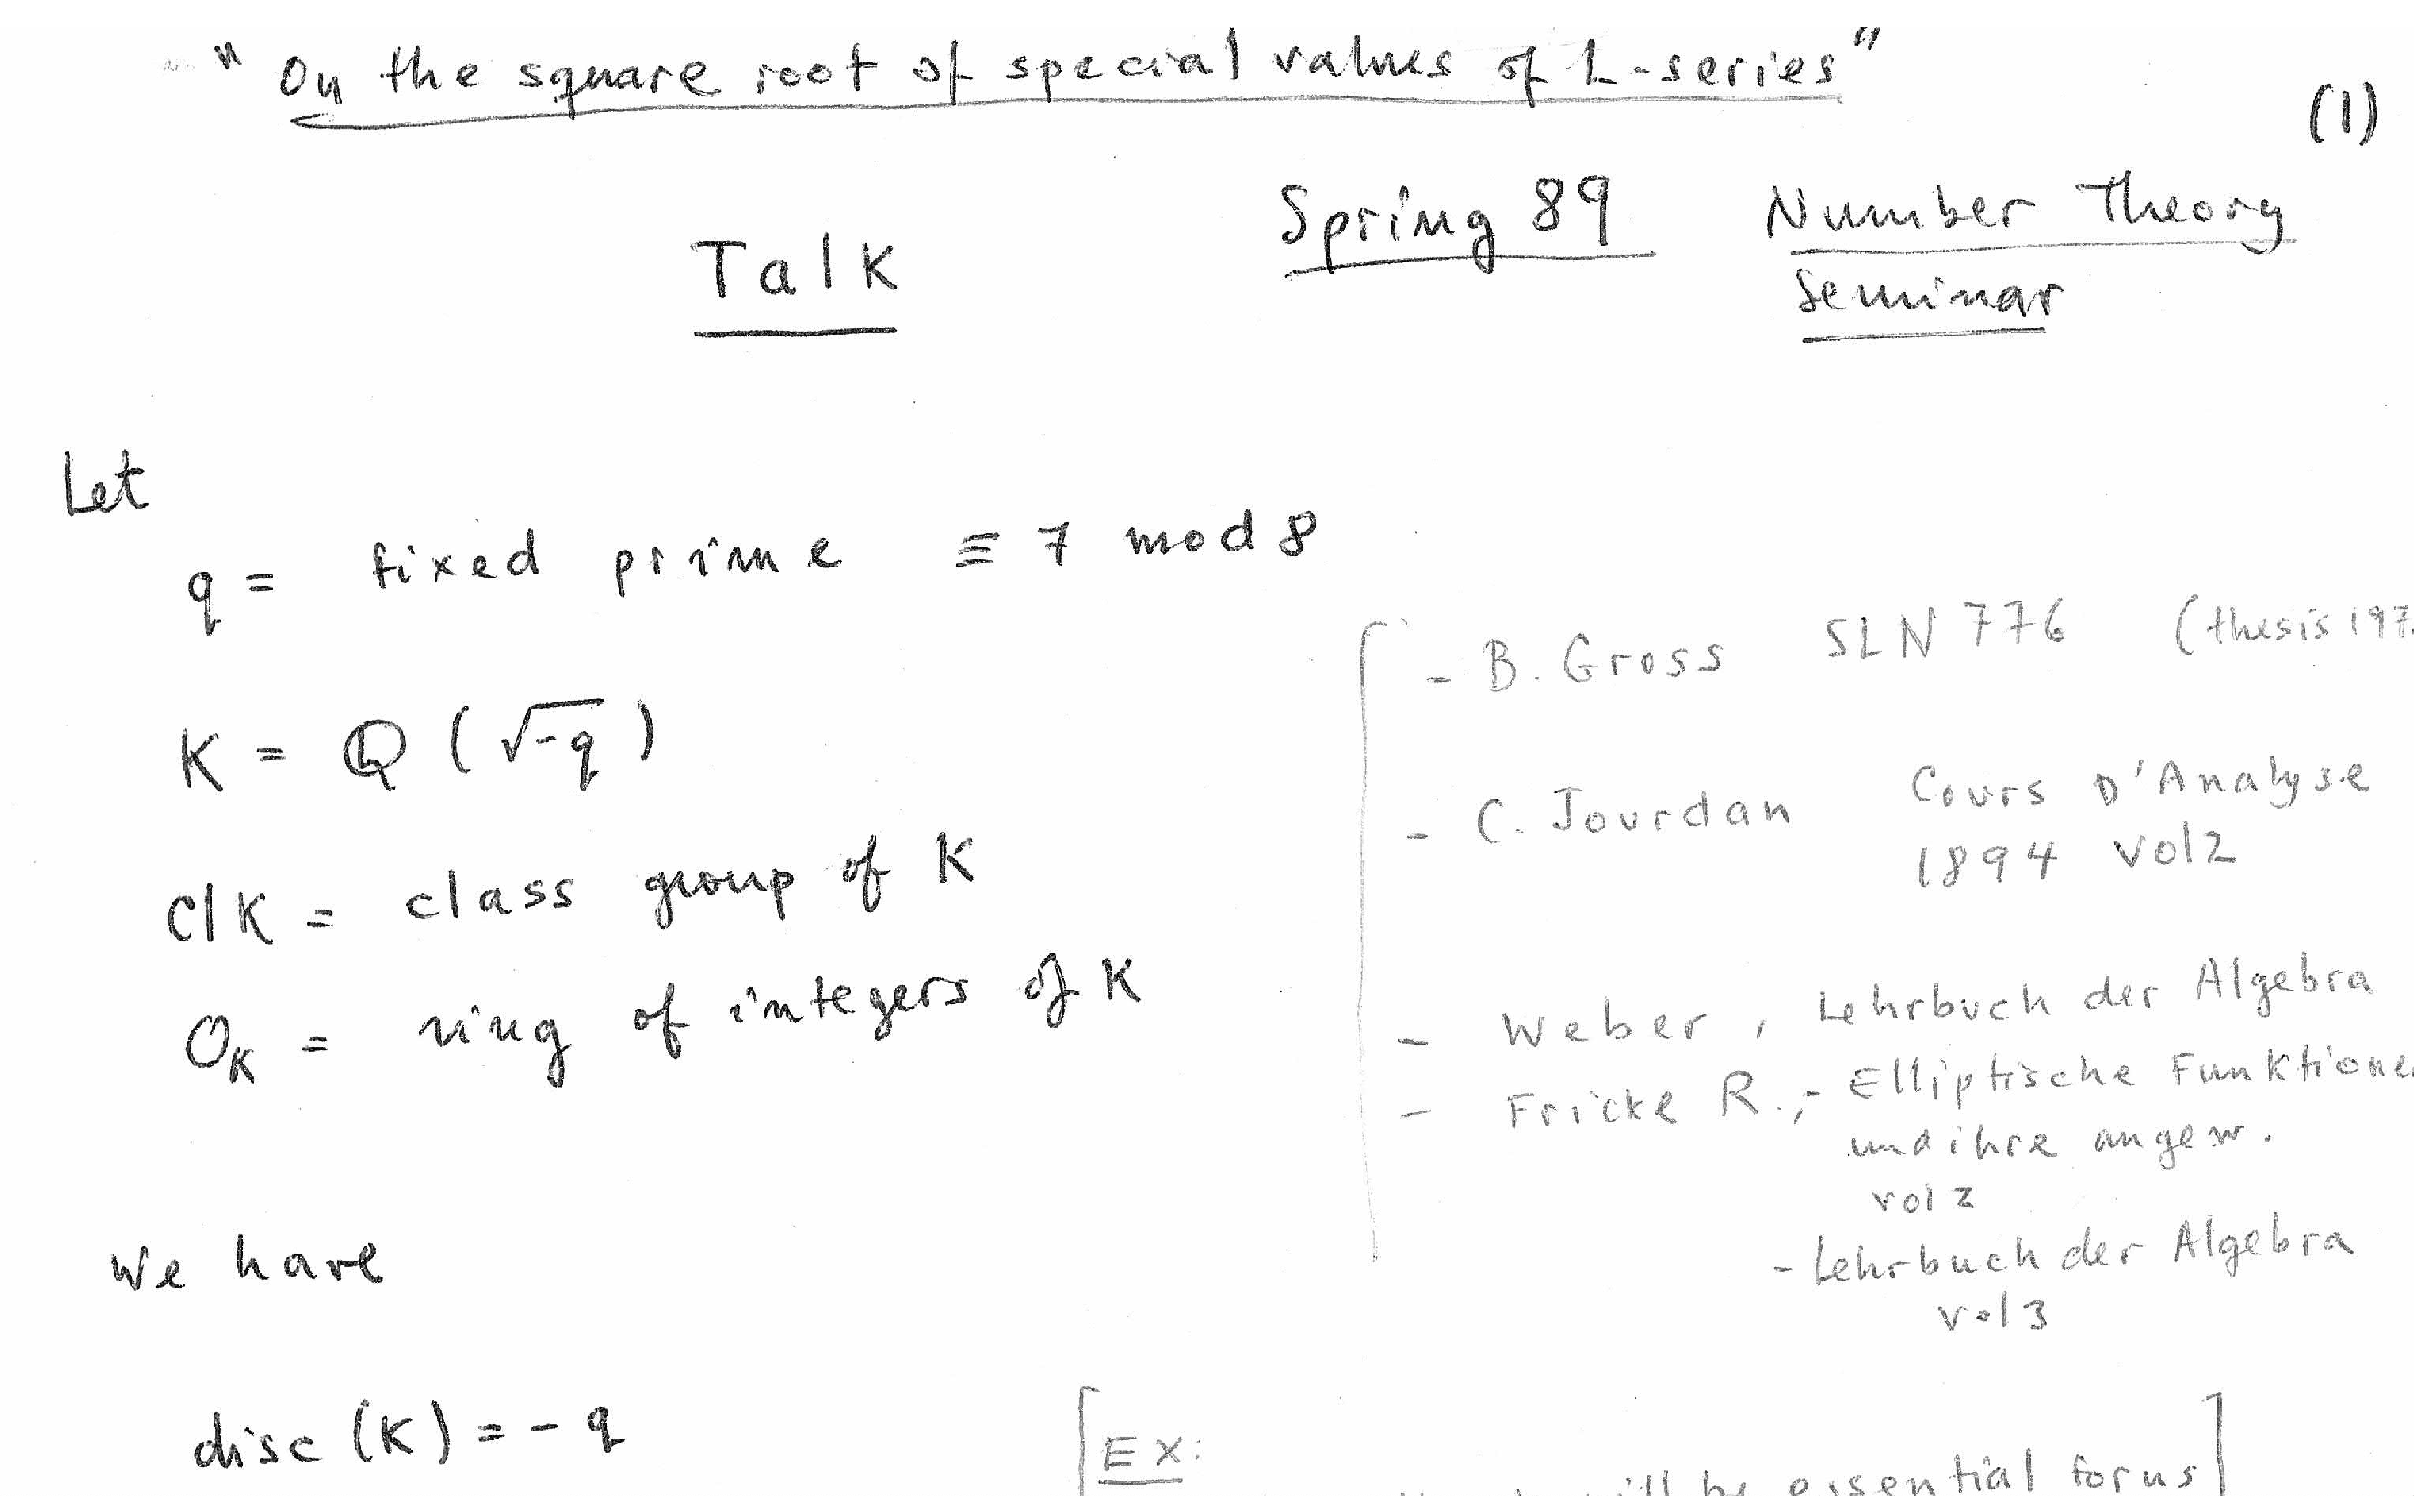 "On the square root of special values of L-series"
(1)
Talk Spring 89 Number Theory
Seminar
Let
q = fixed prime ≡ 7 mod 8
K = ℚ(√-q)
Cl K = class group of K
O_K = ring of integers of K
- B. Gross SLN 776 (thesis 197
- C. Jourdan Cours D'Analyse
1894 vol 2
- Weber, Lehrbuch der Algebra
- Fricke R., - Elliptische Funktione
und ihre angew.
vol 2
- Lehrbuch der Algebra
vol 3
We have
disc (K) = - q
[EX:
will be essential for us]